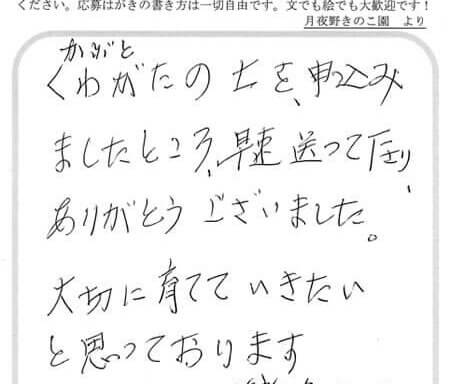 ください。応募はがきの書き方は一切自由です。文でも絵でも大歓迎です！
月夜野きのこ園　より
かぶと
くわがたの土を、申込み
ましたところ、早速送って
ありがとうございました。
大切に育てていきたい
と思っております